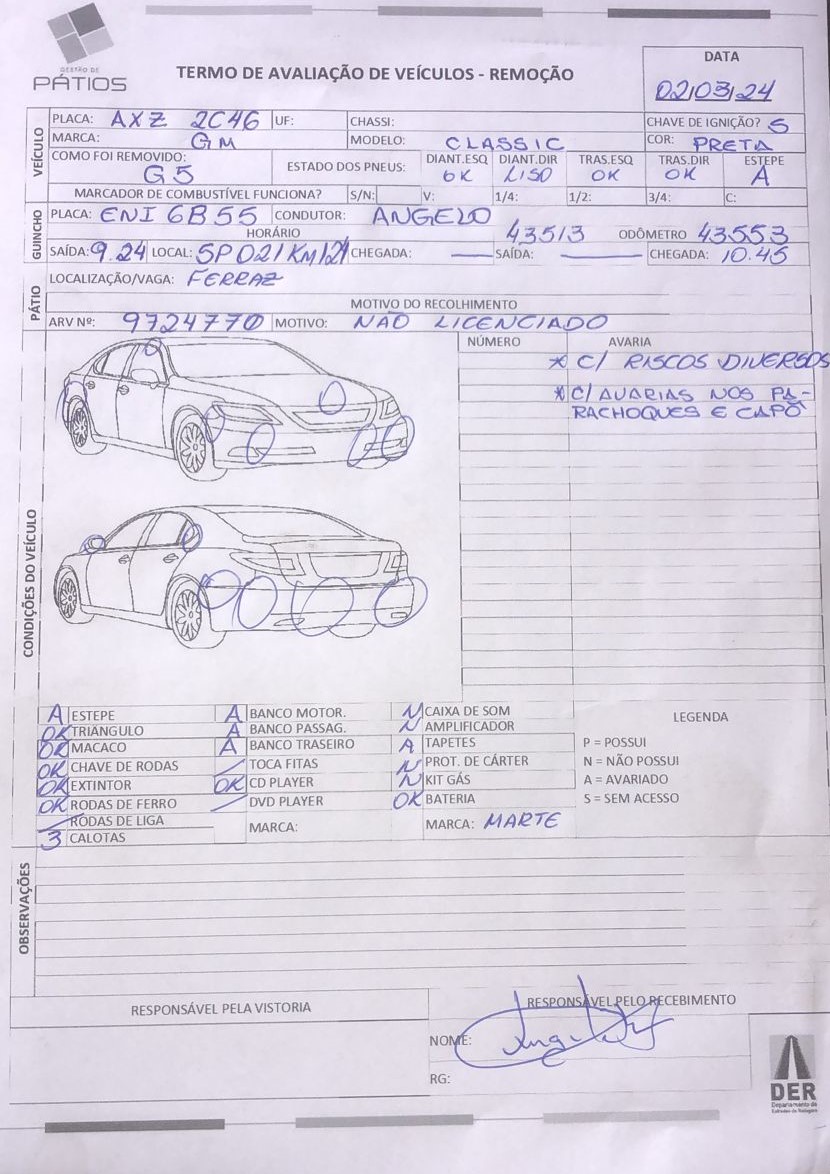 GESTÃO DE
PÁTIOS
TERMO DE AVALIAÇÃO DE VEÍCULOS - REMOÇÃO
DATA
02/03/24
VEÍCULO
PLACA: AXZ 2C46 UF: CHASSI: CHAVE DE IGNIÇÃO? S
MARCA: GM MODELO: CLASSIC COR: PRETA
COMO FOI REMOVIDO: G5 ESTADO DOS PNEUS: DIANT.ESQ OK DIANT.DIR LISO TRAS.ESQ OK TRAS.DIR OK ESTEPE A
MARCADOR DE COMBUSTÍVEL FUNCIONA? S/N: V: 1/4: 1/2: 3/4: C:
GUINCHO
PLACA: ENI 6B55 CONDUTOR: ANGELO
HORÁRIO 43513 ODÔMETRO 43553
SAÍDA: 9.24 LOCAL: SP 021 KM 121 CHEGADA: — SAÍDA: — CHEGADA: 10.45
PÁTIO
LOCALIZAÇÃO/VAGA: FERRAZ
MOTIVO DO RECOLHIMENTO
ARV Nº: 9724770 MOTIVO: NÃO LICENCIADO
CONDIÇÕES DO VEÍCULO
NÚMERO AVARIA
* C/ RISCOS DIVERSOS
* C/ AVARIAS NOS PA-
RACHOQUES E CAPÔ
A ESTEPE A BANCO MOTOR. N CAIXA DE SOM LEGENDA
OK TRIÂNGULO A BANCO PASSAG. N AMPLIFICADOR
OK MACACO A BANCO TRASEIRO A TAPETES P = POSSUI
OK CHAVE DE RODAS / TOCA FITAS N PROT. DE CÁRTER N = NÃO POSSUI
OK EXTINTOR OK CD PLAYER N KIT GÁS A = AVARIADO
OK RODAS DE FERRO / DVD PLAYER OK BATERIA S = SEM ACESSO
/ RODAS DE LIGA MARCA: MARCA: MARTE
3 CALOTAS
OBSERVAÇÕES
RESPONSÁVEL PELA VISTORIA RESPONSÁVEL PELO RECEBIMENTO
NOME:
RG:
DER
Departamento de
Estradas de Rodagem